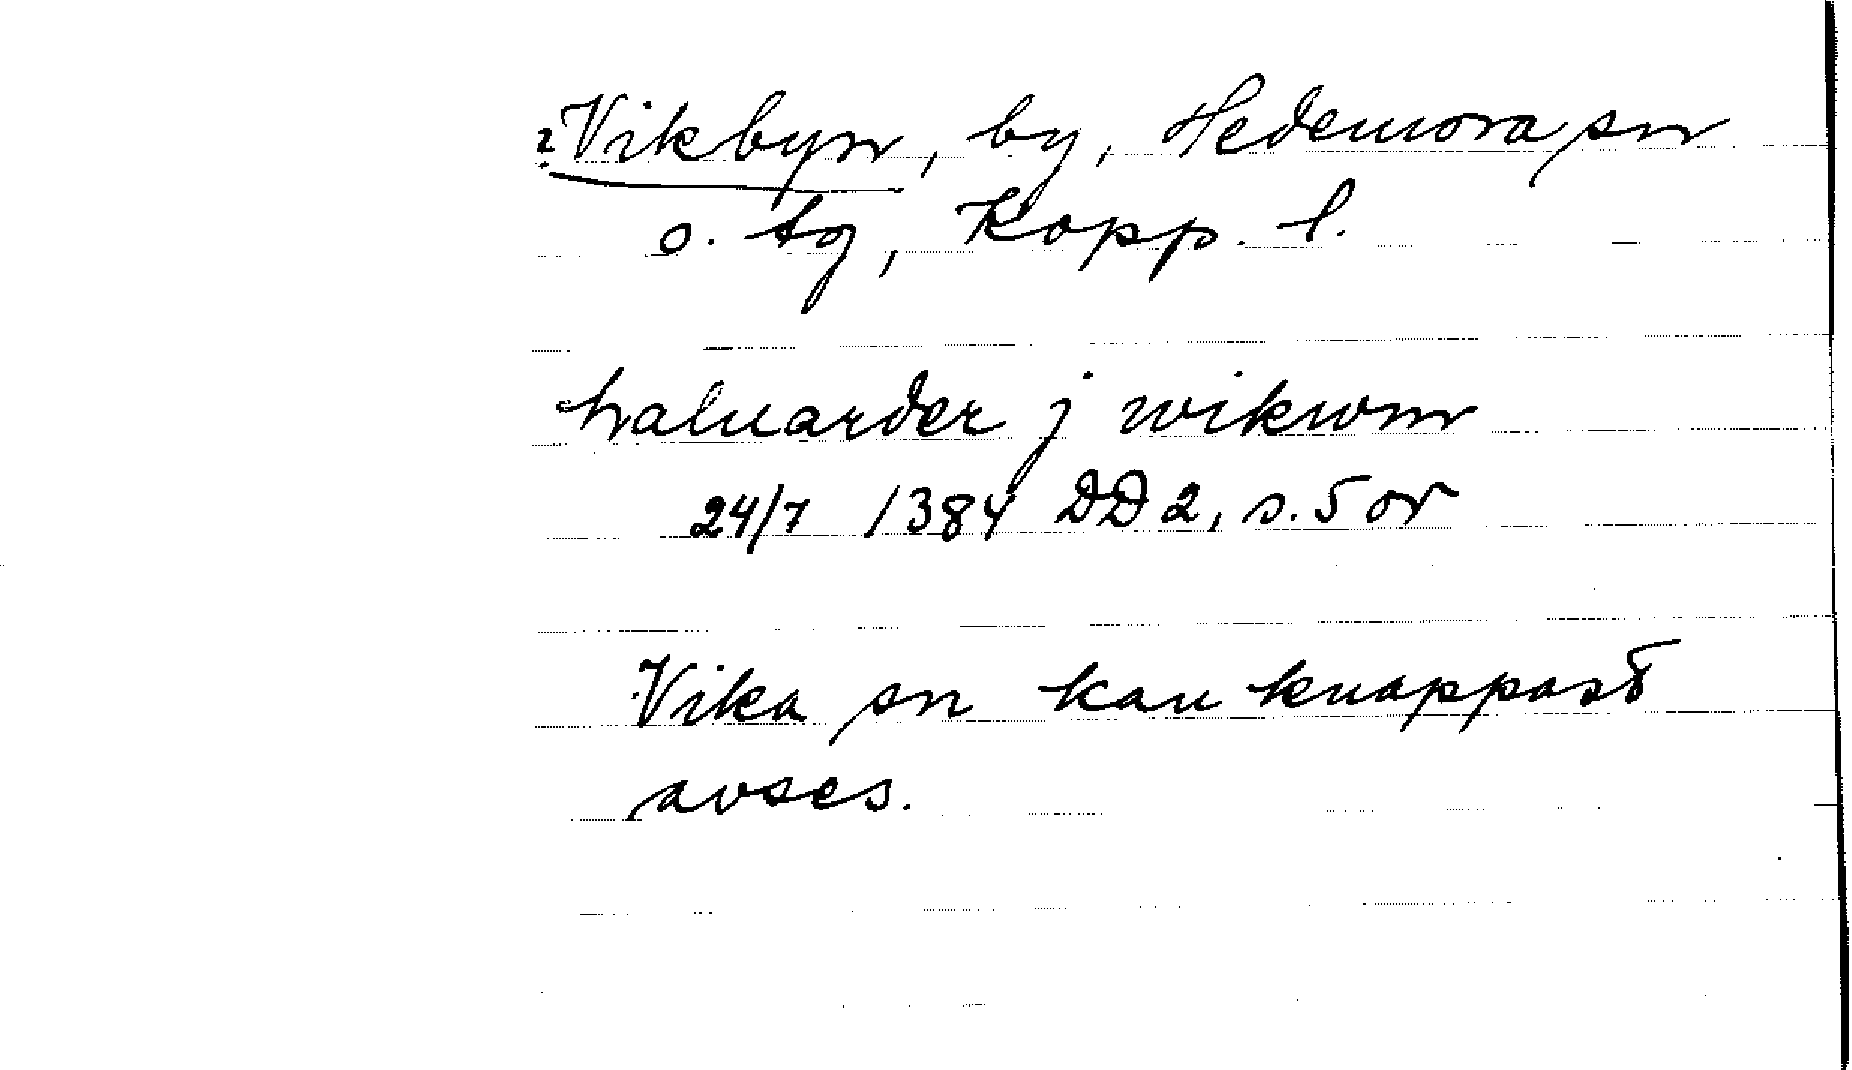 ?Vikbyn, by, Hedemora sn
o. tg, Kopp. l.
haluarder j wikwm
24/7 1384 DD 2, s. 5 or
Vika sn kan knappast
avses.